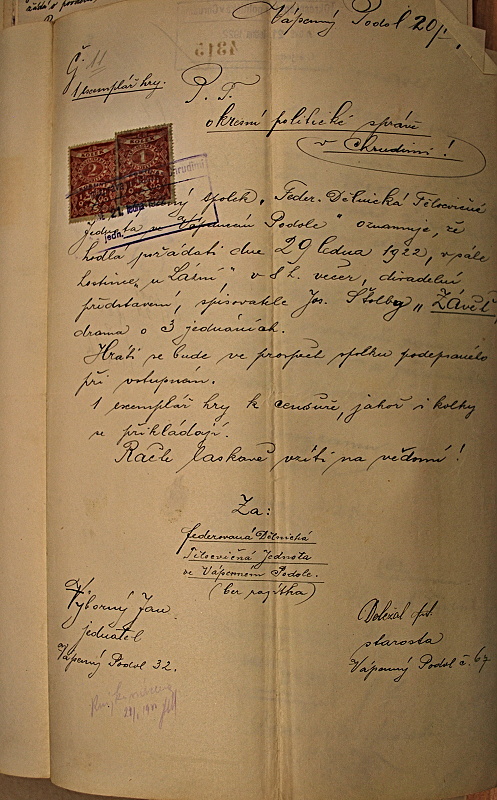 Vápenný Podol 20/1
4315
Č. 11
1 exemplář hry.
P. T.
okresní politické správě
v Chrudimi!
spolek „Feder. Dělnická Tělocvičná
Jednota ve Vápenném Podole" oznamuje, že
hodlá pořádati dne 29 ledna 1922, v sále
hostince „u Lázní" v 8 h. večer, divadelní
představení, spisovatele Jos. Štolby „Závěť"
drama o 3 jednáních.
Hráti se bude ve prospěch spolku podepsaného
při vstupném.
1 exemplář hry k censuře, jakož i kolky
se přikládají.
Račte laskavě vzíti na vědomí!
Za:
federovaná Dělnická
Tělocvičná Jednota
ve Vápenném Podole.
(bez razítka)
Výborný Jan
jednatel
Vápenný Podol 32.
Doležal
starosta
Vápenný Podol č. 67